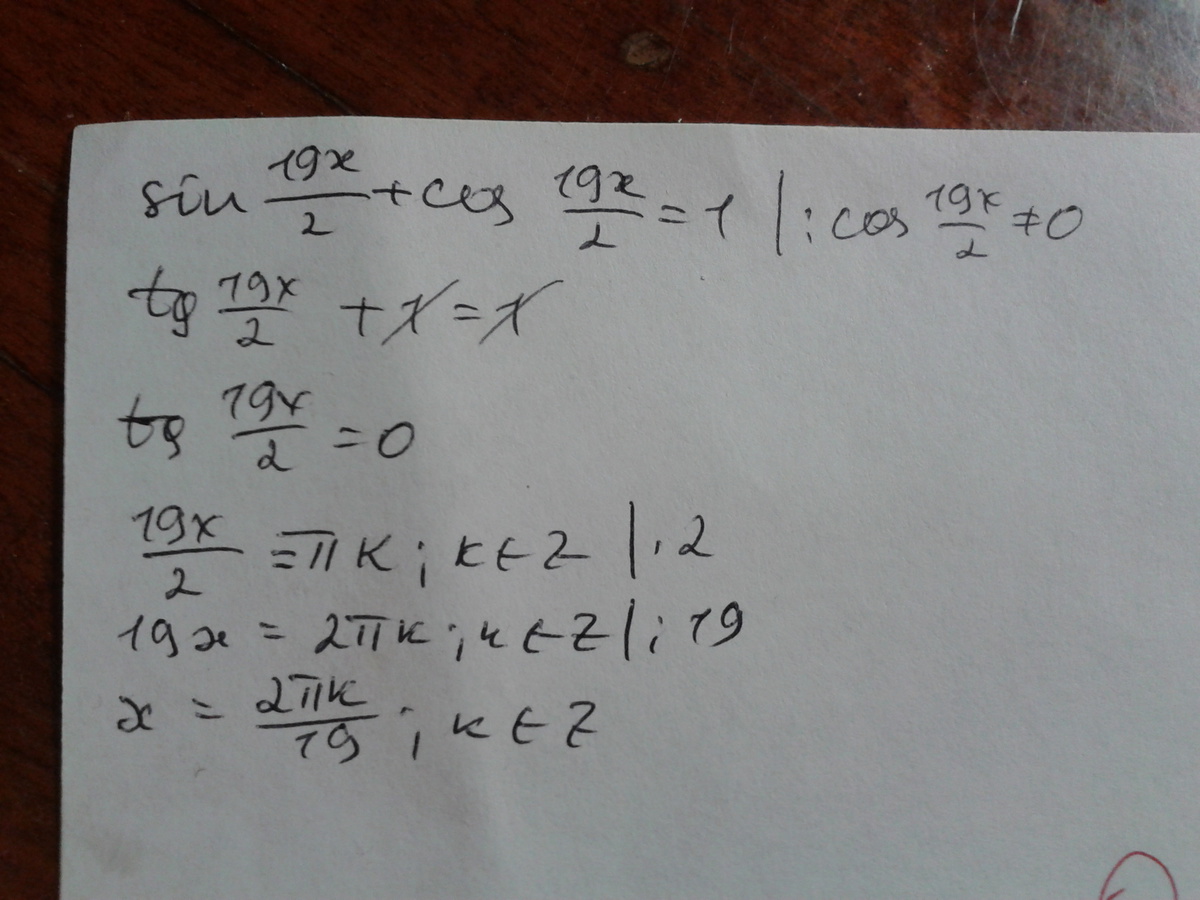 sin 19x/2 + cos 19x/2 = 1 | : cos 19x/2 ≠ 0
tg 19x/2 + 1 = 1
tg 19x/2 = 0
19x/2 = πk ; k ∈ Z | · 2
19x = 2πk ; k ∈ Z | : 19
x = 2πk/19 ; k ∈ Z